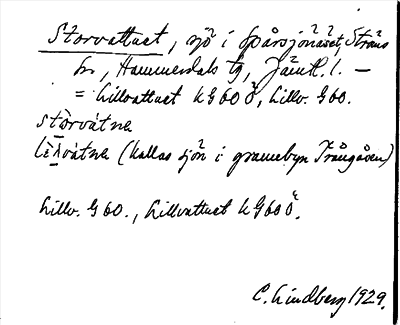 Storvattnet, sjö i Spårsjönäset, Ströms
sn, Hammerdals tg, Jämtl. l. —
= Lillvattnet k G 60 Ö, Lillv. G 60.
stòrvátne
lìlvátne (kallas sjön i grannebyn Trångåsen)
Lillv. G 60., Lillvattnet k G 60 Ö.
C. Lindberg 1929.